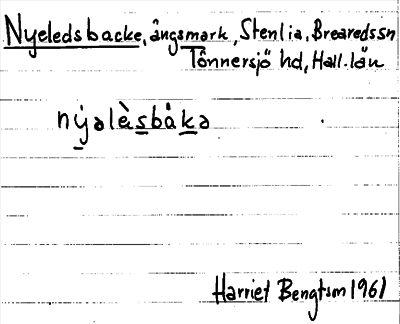 Nyeledsbacke, ängsmark, Stenlia, Brearedssn
Tönnersjö hd, Hall. län
nýalèsbåka
Harriet Bengtson 1961